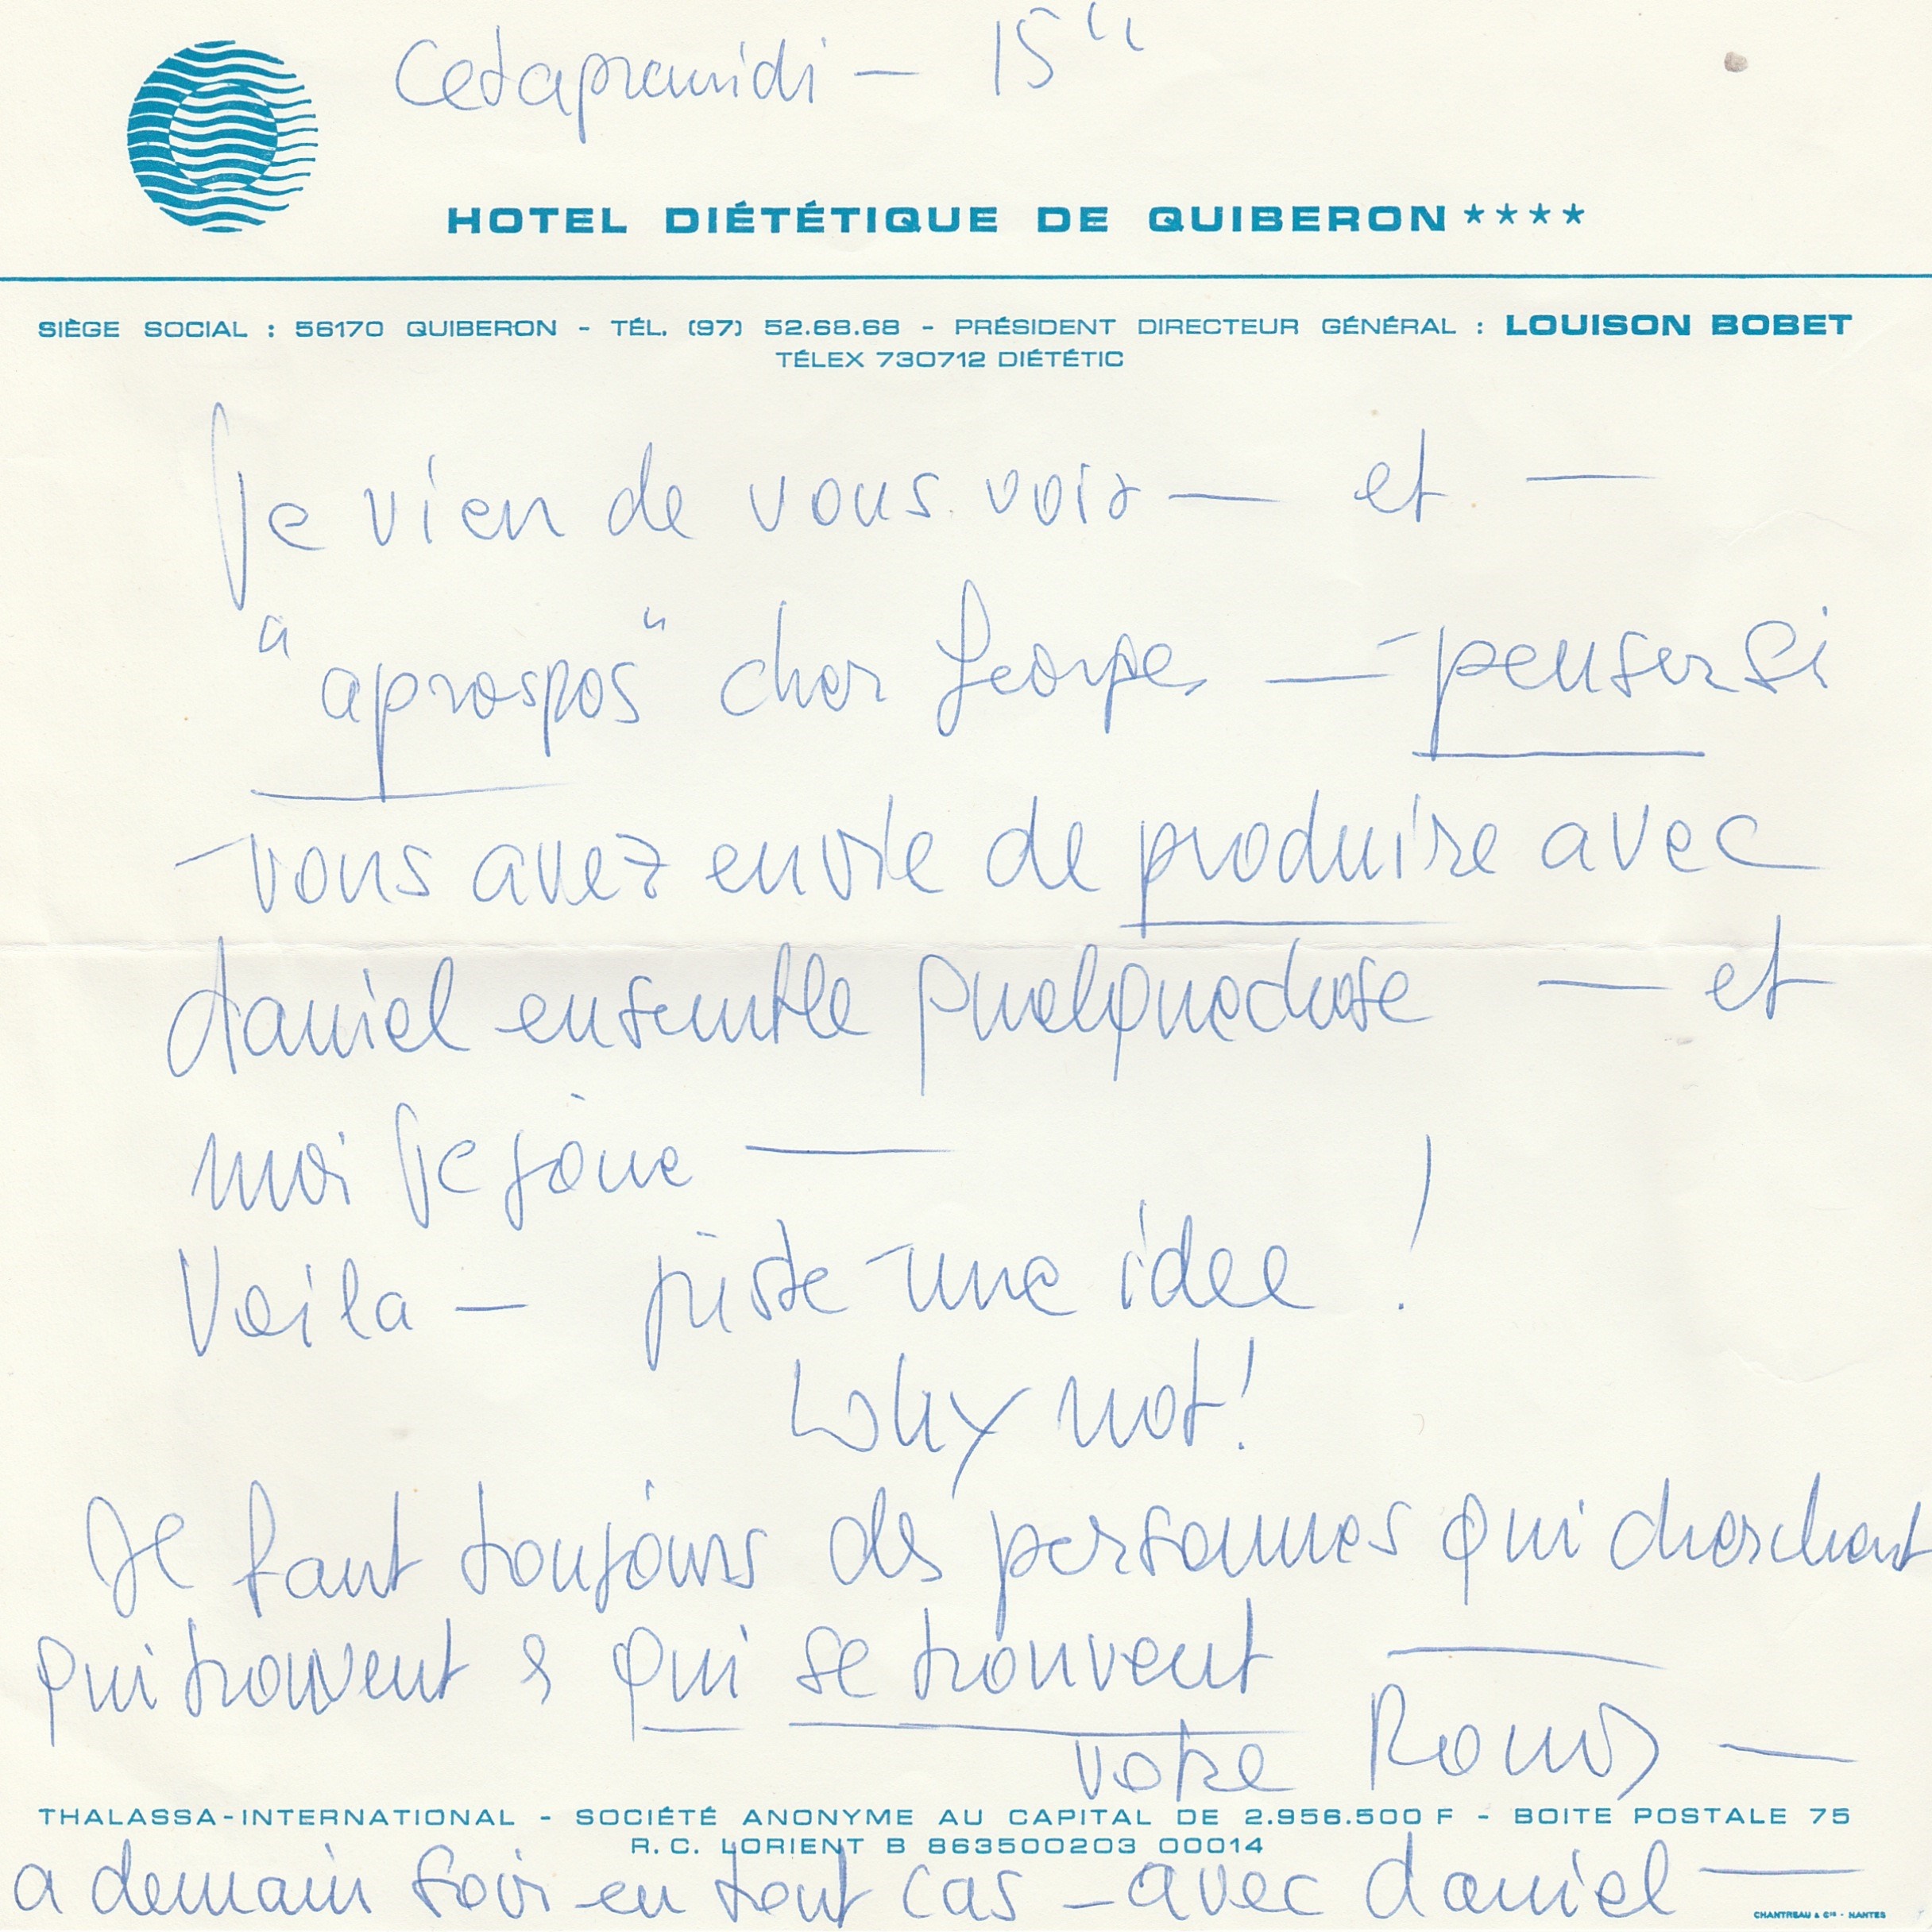 Cetapramidi — 15"
HOTEL DIÉTÉTIQUE DE QUIBERON ****
SIÈGE SOCIAL : 56170 QUIBERON - TÉL. (97) 52.68.68 - PRÉSIDENT DIRECTEUR GÉNÉRAL : LOUISON BOBET
TÉLEX 730712 DIÉTÉTIC
Je vien de vous voir — et —
"a aprospos" cher Georges — penser si
vous avez envie de produire avec
daniel ensemble quelquechose — et
moi je joue —
Voila — juste une idee !
Why not!
Il faut toujours des personnes qui cherchent
qui trouvent & qui se trouvent —
votre Romy —
THALASSA-INTERNATIONAL - SOCIÉTÉ ANONYME AU CAPITAL DE 2.956.500 F - BOITE POSTALE 75
R.C. LORIENT B 863500203 00014
a demain soir en tout cas — avec daniel —
CHANTREAU & Cie - NANTES